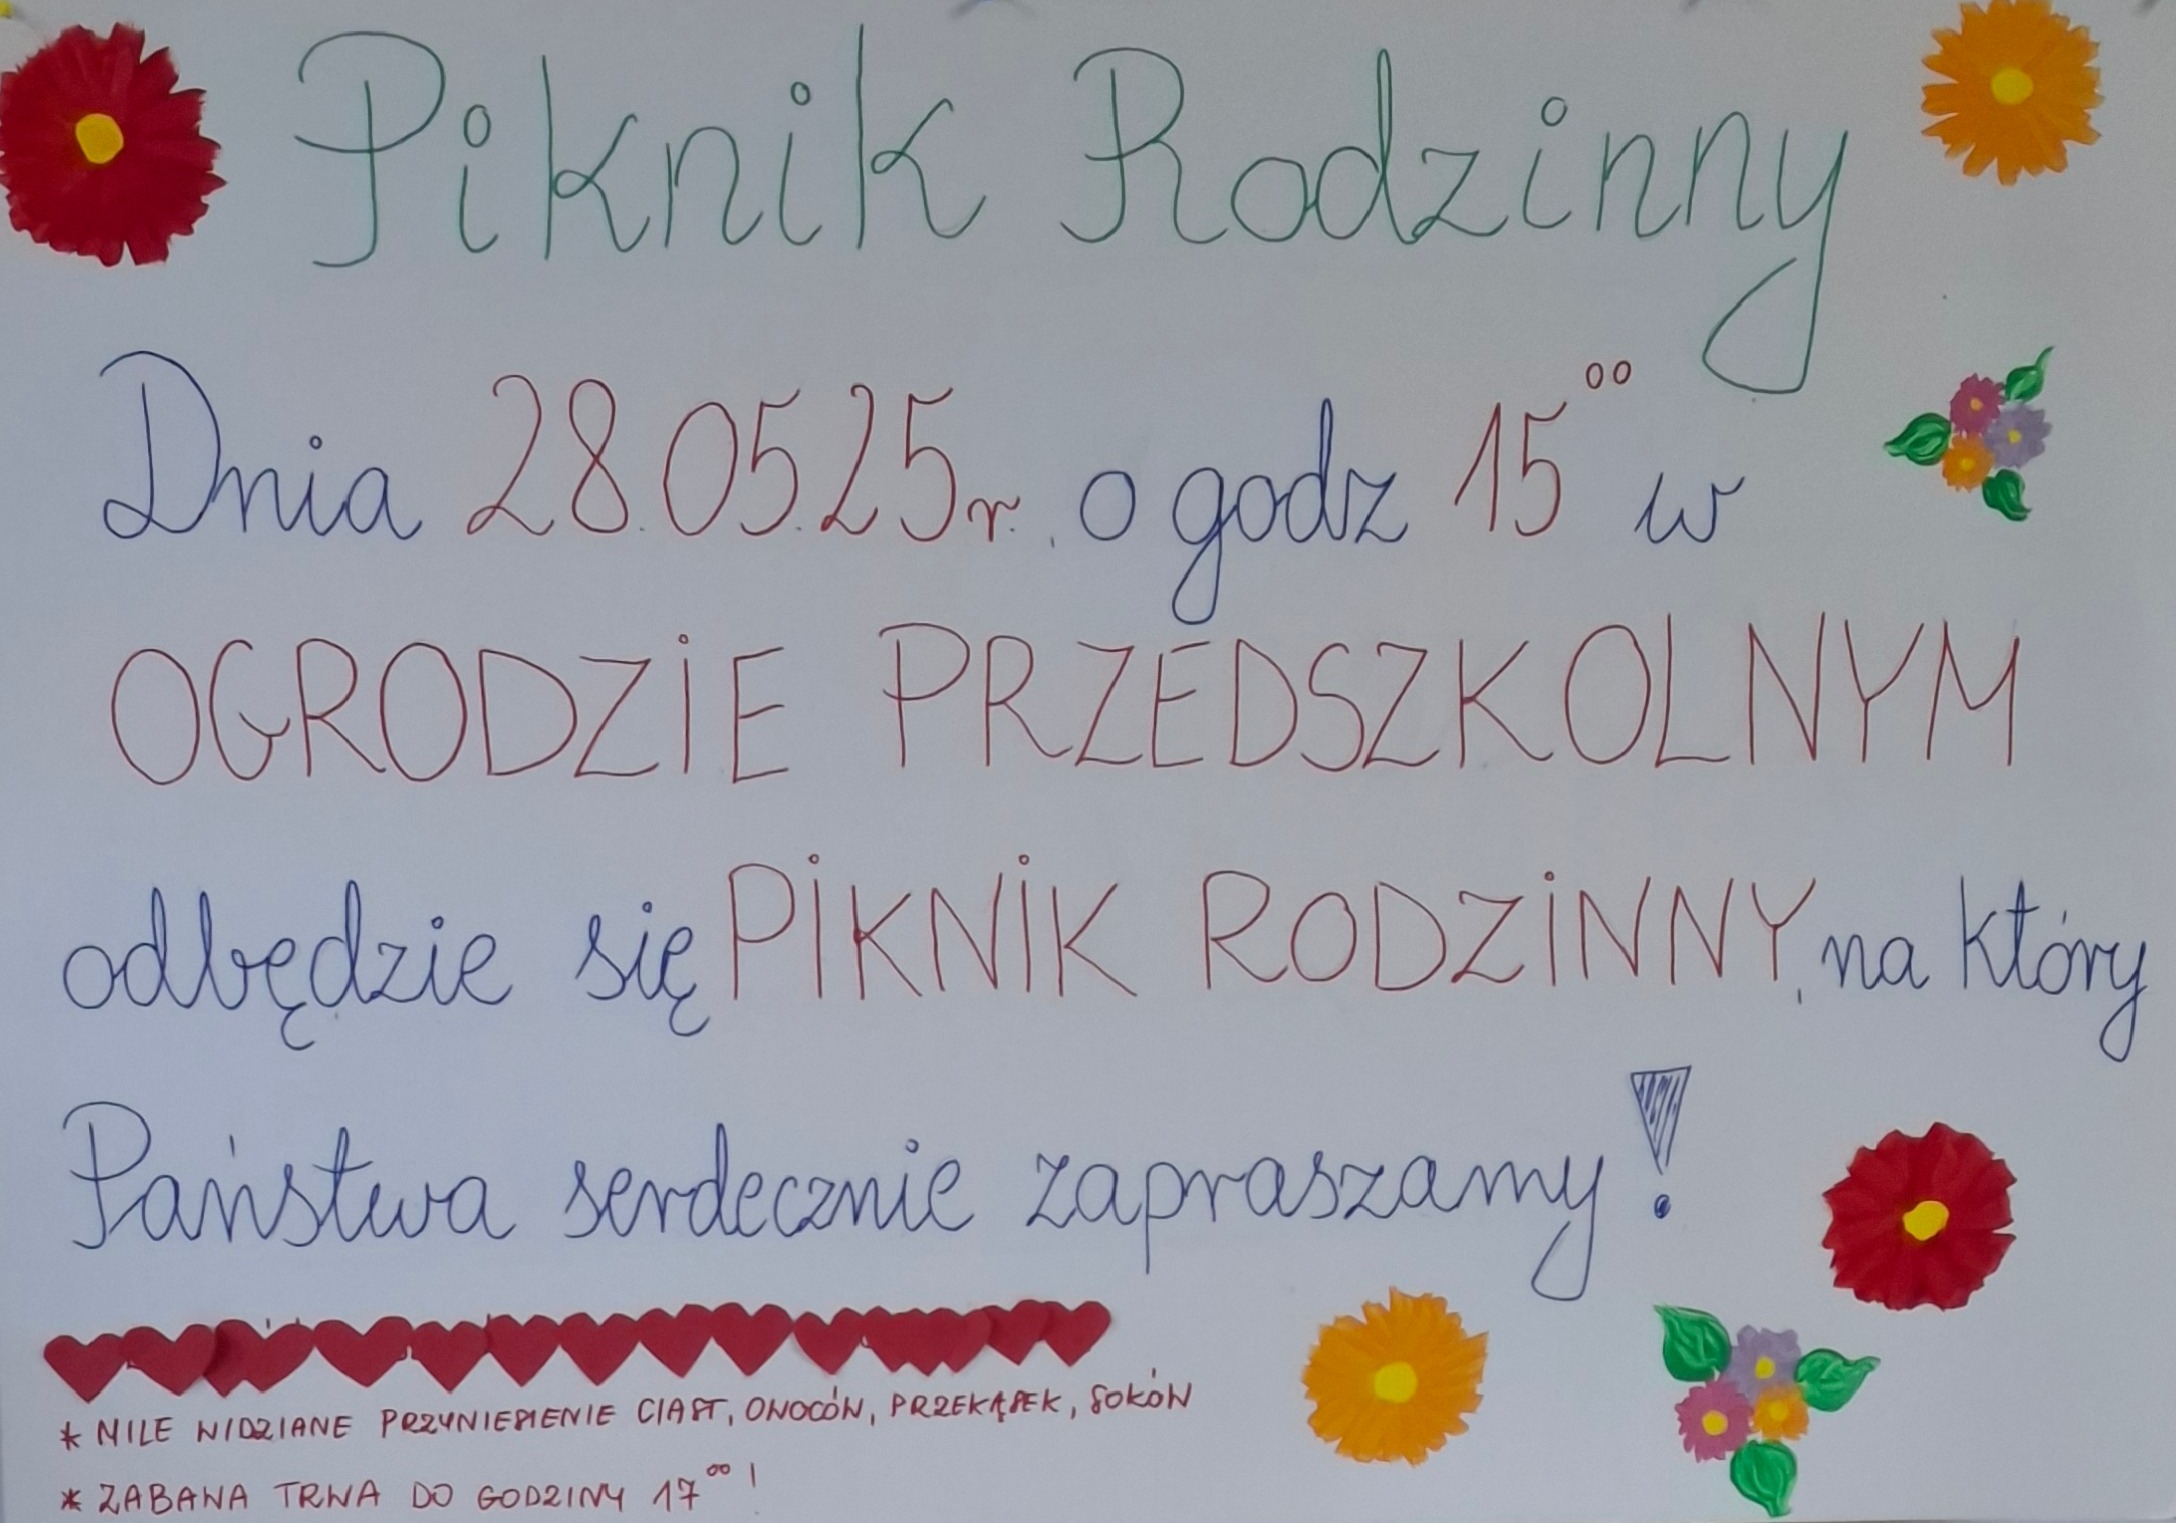 Piknik Rodzinny
Dnia 28.05.25r., o godz 15⁰⁰ w
OGRODZIE PRZEDSZKOLNYM
odbędzie się PIKNIK RODZINNY, na który
Państwa serdecznie zapraszamy!
* MILE WIDZIANE PRZYNIESIENIE CIAST, OWOCÓW, PRZEKĄSEK, SOKÓW
* ZABAWA TRWA DO GODZINY 17⁰⁰!